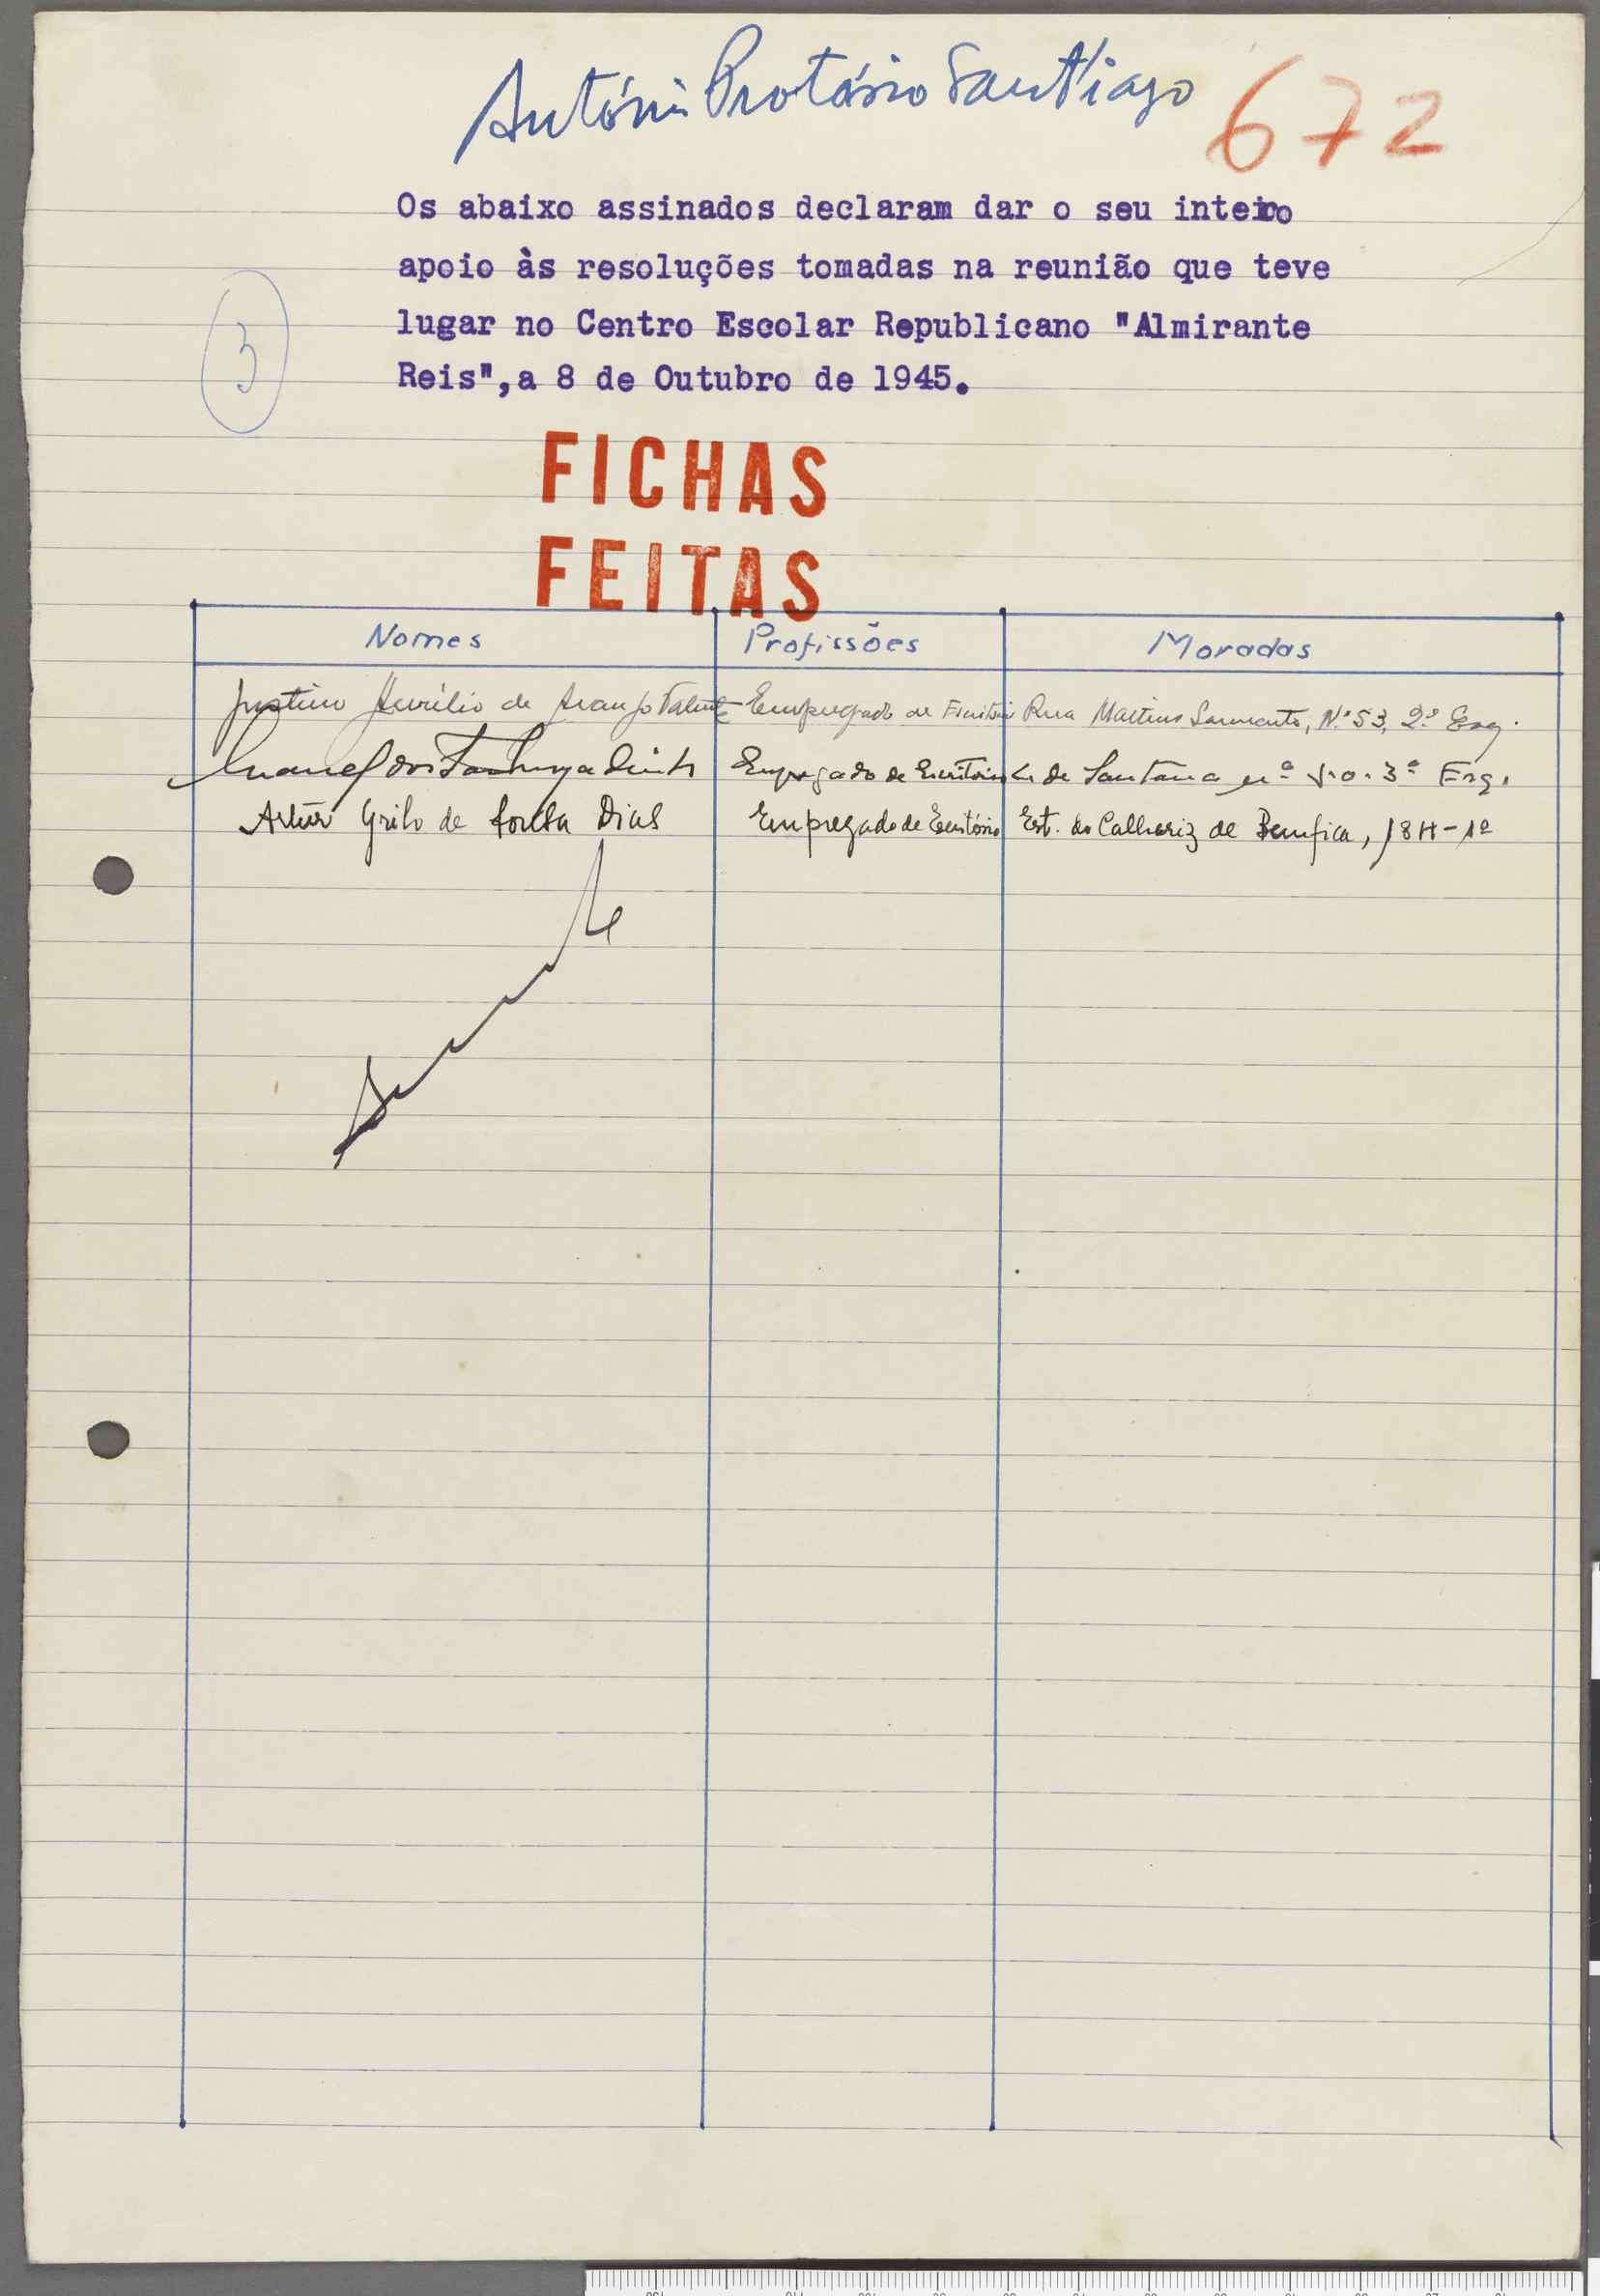 António Protásio Santiago
672
Os abaixo assinados declaram dar o seu inteiro
apoio às resoluções tomadas na reunião que teve
lugar no Centro Escolar Republicano "Almirante
Reis", a 8 de Outubro de 1945.
3
FICHAS
FEITAS
Nomes Profissões Moradas
Justino Aurélio de Araujo Valente Empregado de Escritório Rua Martins Sarmento, Nº 53, 2º Esq.
Manuel dos Empregado de Escritório de Santana nº 3º Esq.
Artur Grilo de Sousa Dias Empregado de Escritório Est. do Calhariz de Benfica, 18H-1º